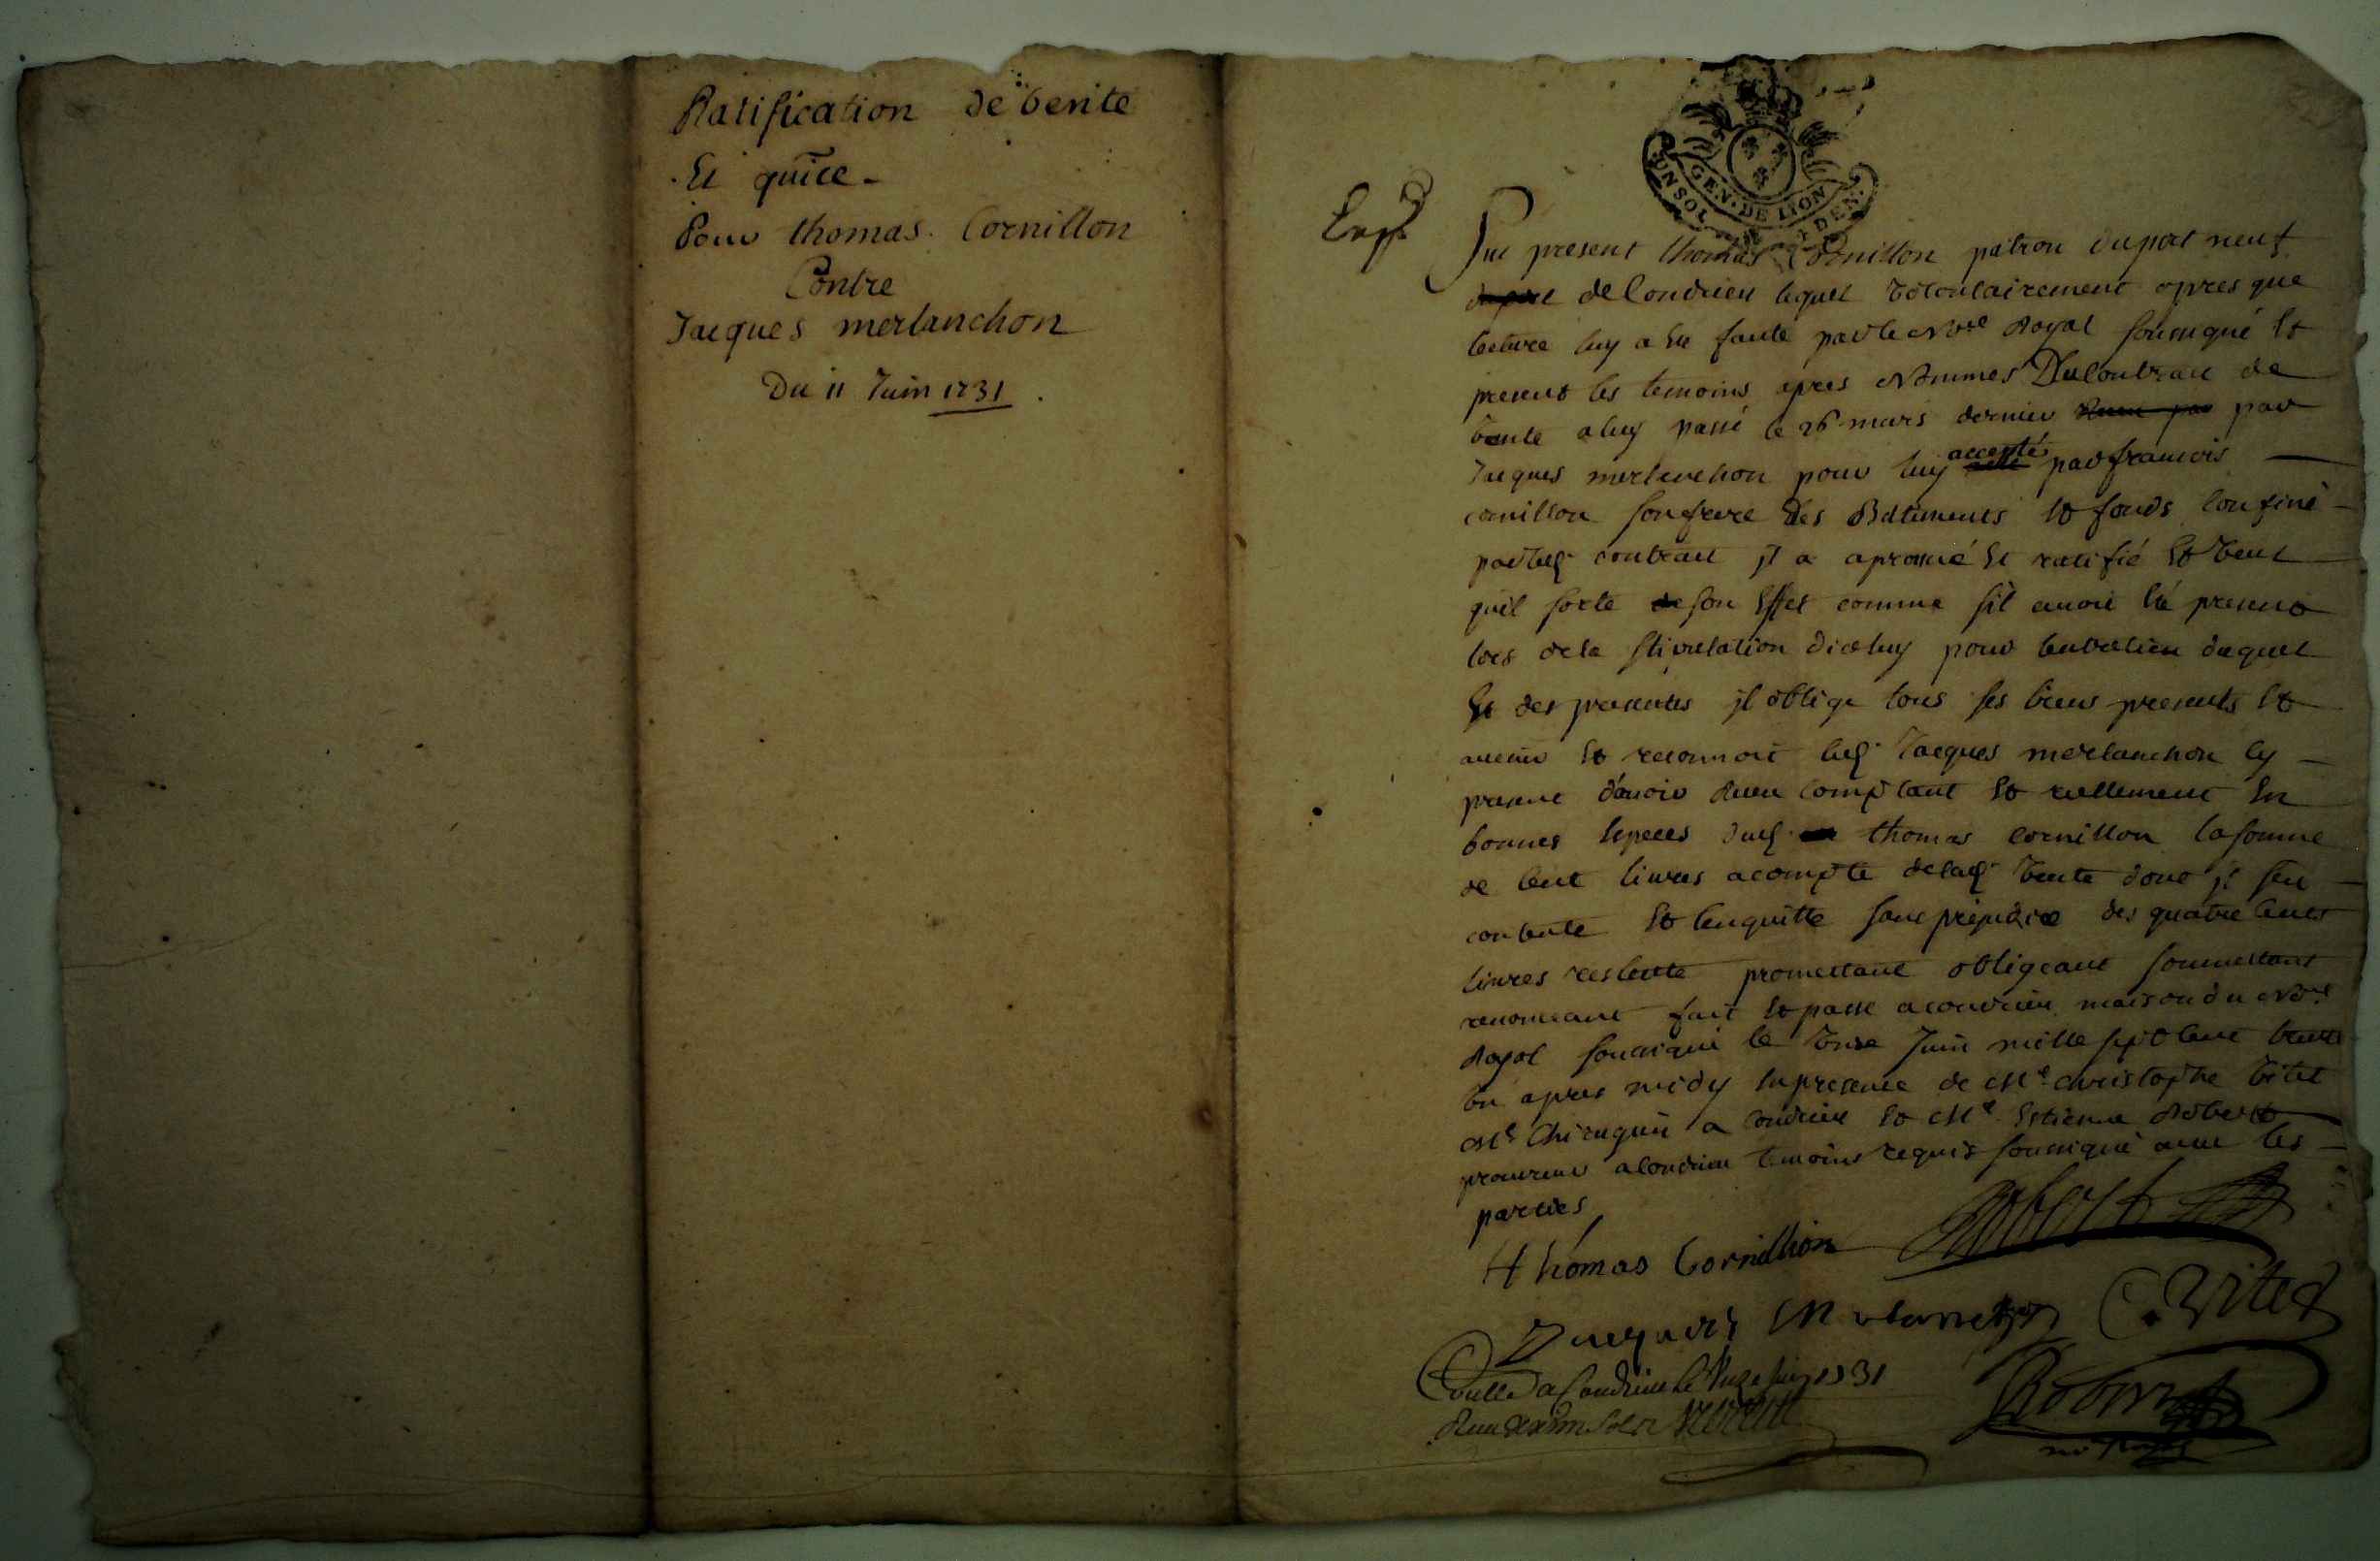 Ratification de vente
Et quitce
Pour thomas Cornillon
Contre
Jacques merlanchon
Du 11 Juin 1731
GEN. DE LION
UN SOL DEN.
Exp.
Fut present thomas Cornillon patron du port neuf
de Condrieu lequel volontairement apres que
lecture luy a eté faite par le No.re Royal soussigné et
present les temoins apres Nommes Du contract de
vente a luy passé le 26 mars dernier par
Jacques merlanchon pour luy accepté par francois
cornillon son frere des Batiments et fonds confiné
par led. contract il a aprouvé et ratifié et veut
quil sorte son Effet comme sil avoit eté present
lors de la stipulation diceluy pour lentretien duquel
et des presentes jl oblige tous ses biens presents et
avenir et reconnoit led. Jacques merlanchon cy
present d'avoir Receu comptant et reellement en
bonnes especes dud. thomas cornillon la somme
de cent livres acompte de lad. vente dont jl sen
contente et lenquitte sans prejudice des quatre cents
livres restente promettant obligeant soumettant
renonceant fait et passé a condrieu maison du No.re
Royal soussigné le onze Juin mille sept cent trente
un apres midy en presence de Me christophe vitet
Me Chirugien a Condrieu et Me Estienne Robert
procureur a Condrieu temoins requis soussigné avec les
parties
Thomas Cornillion Robert
Jacques Merlanchon C. Vitet
Conllé a Condrieu le onze juin 1731
Receu douze sols